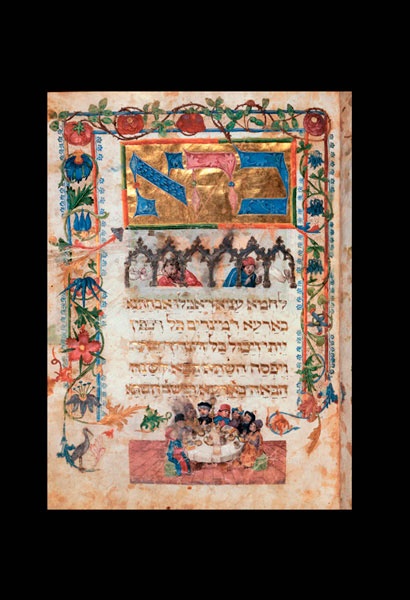 כהא
לחמא עניא די אכלו אבהתנא
בארעא דמצרים כל דכפין
ייתי ויכול כל
ויפסח השתא
הבאה בארעא דישראל השתא